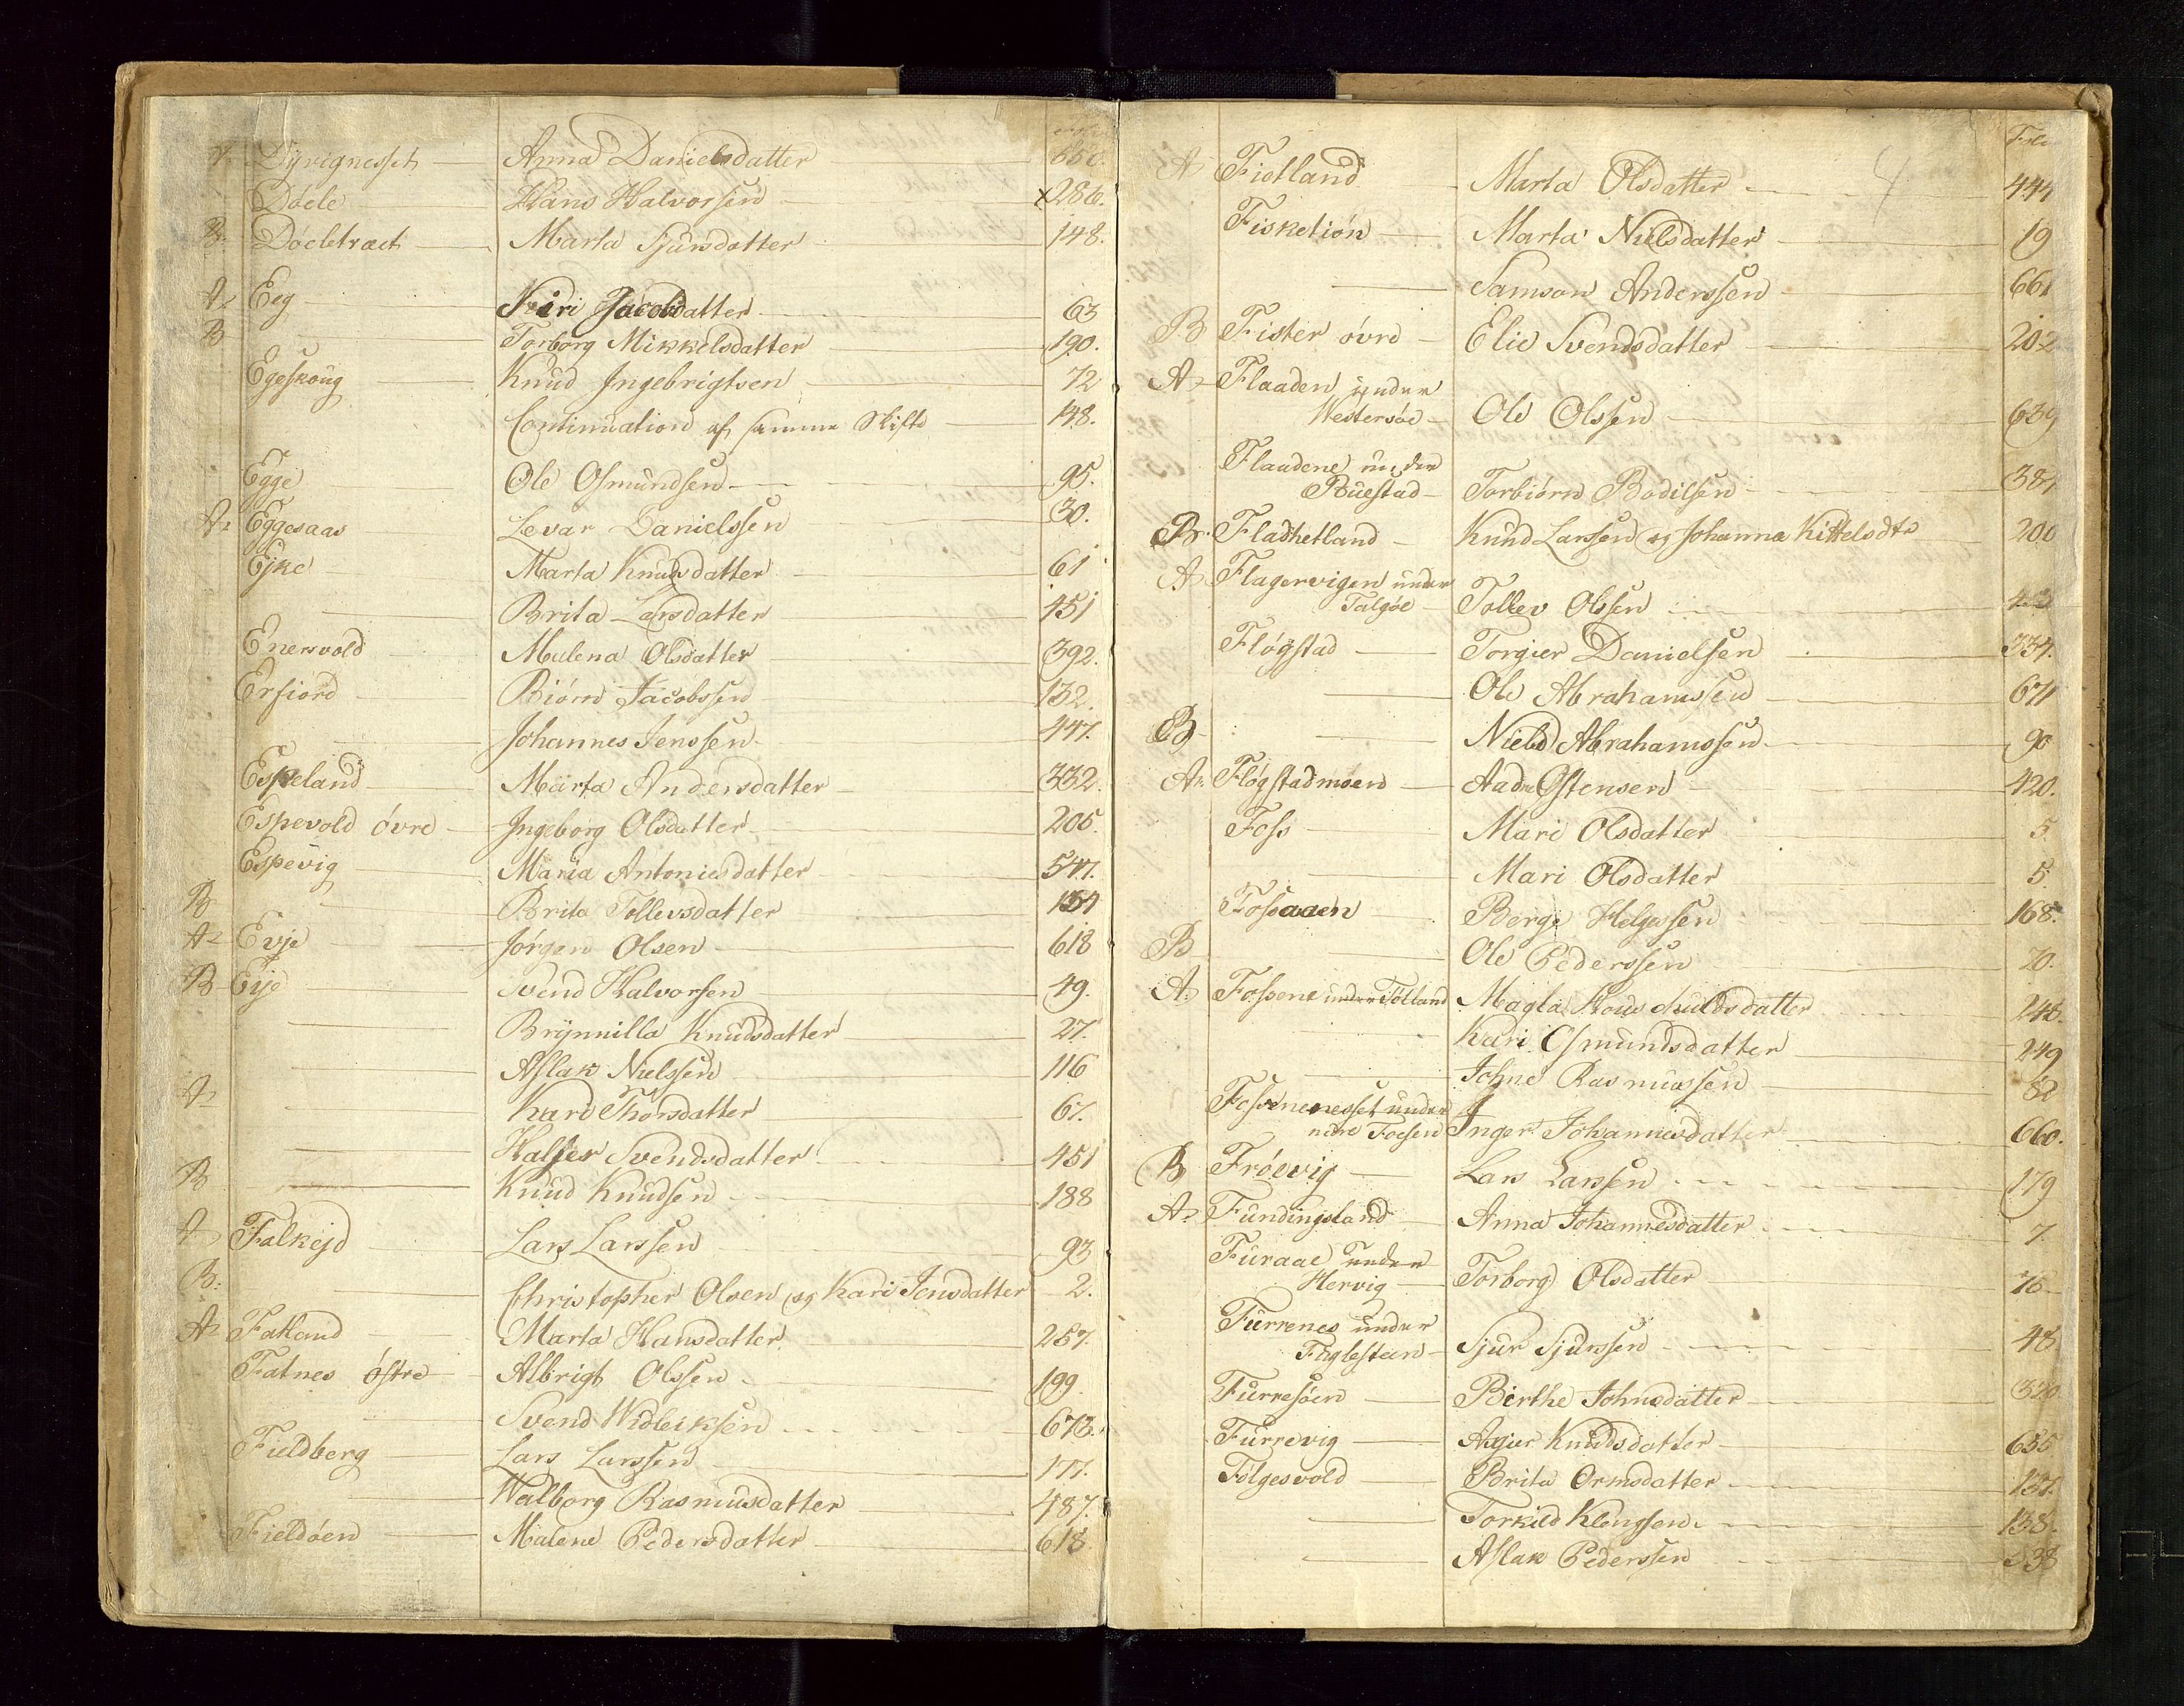 A. Dÿrignesset Anna Danielsdatter 650.
Døele Hans Halvorsen x286.
B. Døeletræet Marta Sjursdatter 148.
A. Eeg Siri Jacobsdatter 63
B Torborg Mikkelsdatter 190.
Egeskoug Knud Ingebrigtsen 72
Continuation af samme Skifte 148.
Egge Ole Osmundsen 95.
A. Eggesaas Levar Danielssen 30.
Ejke Marta Knudsdatter 61
Brita Larsdatter 451
Enersvold Malena Olsdatter 392.
Erfiord Biørn Jacobssen 132.
Johannes Jenssen 447.
Espeland Marta Andersdatter 332.
Espevold øvre Ingeborg Olsdatter 205.
Espevig Maria Antoniesdatter 547.
B Brita Tollevsdatter
A. Evje Jørgen Olsen 618
B Evje Svend Halvorsen 49.
Brÿnnilla Knudsdatter 27.
Aslak Nielssen 116
A. Kari Thorsdatter 67.
Svendsdatter 451
B Knud Knudsen 188
A Falkejd Lars Larssen 93
B. Christopher Olsen og Kari Jensdatter 2.
A. Fatland Marta Hansdatter 257.
Fatnes østre Albrigt Olssen 199
Svend Widleiksen 673.
Fieldberg Lars Larssen 177.
Walborg Rasmusdatter 487.
Fieldøen Malene Pedersdatter 618
Folio
A Fiotland Marta Olsdatter 444
4
Fisketiøn Marta Nielsdatter 19
Samson Anderssen 661
B Fister øvre Elie Svendsdatter 202
A. Flaaden under
Westersøe Ole Olssen 639
Flaadene under
Ruestad Torbiørn Bodilsen 384
B. Fladhetland Knud Larssen og Johanna Kittelsdtr 200
A. Flagervigen under
Talgøe Tollev Olssen
Fløgstad Torgier Danielsen 334.
Ole Abrahamssen 671
B Niels Abrahamssen 90
A. Fløgstadmoen Aadne Ostensen 420.
Foss Mari Olsdatter 5.
Mari Olsdatter 5.
Fossaaen Berge Helgessen 168.
B Ole Pederssen 70.
A. Fossene under Tølland Magla 248.
Kari Osmundsdatter 249
Johne Rasmussen 82
Fossenenesset under
nære Foesen Inger Johannesdatter 660.
B Frøevig Lars Larssen 179
A. Fundingsland Anna Johannesdatter 7.
Furaae under
Hervig Torborg Olsdatter 16
Furrenes under
Fuglesteen Sjur Sjurssen 48
Furresøen Birthe Johnsdatter 320
Furrevig Asgier Knudsdatter 655
Følgesvold Brita Ormsdatter 137.
Torkild Klongsen 138.
Aslak Pederssen